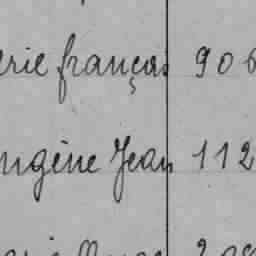 erie françois 906
ngène Jean 112